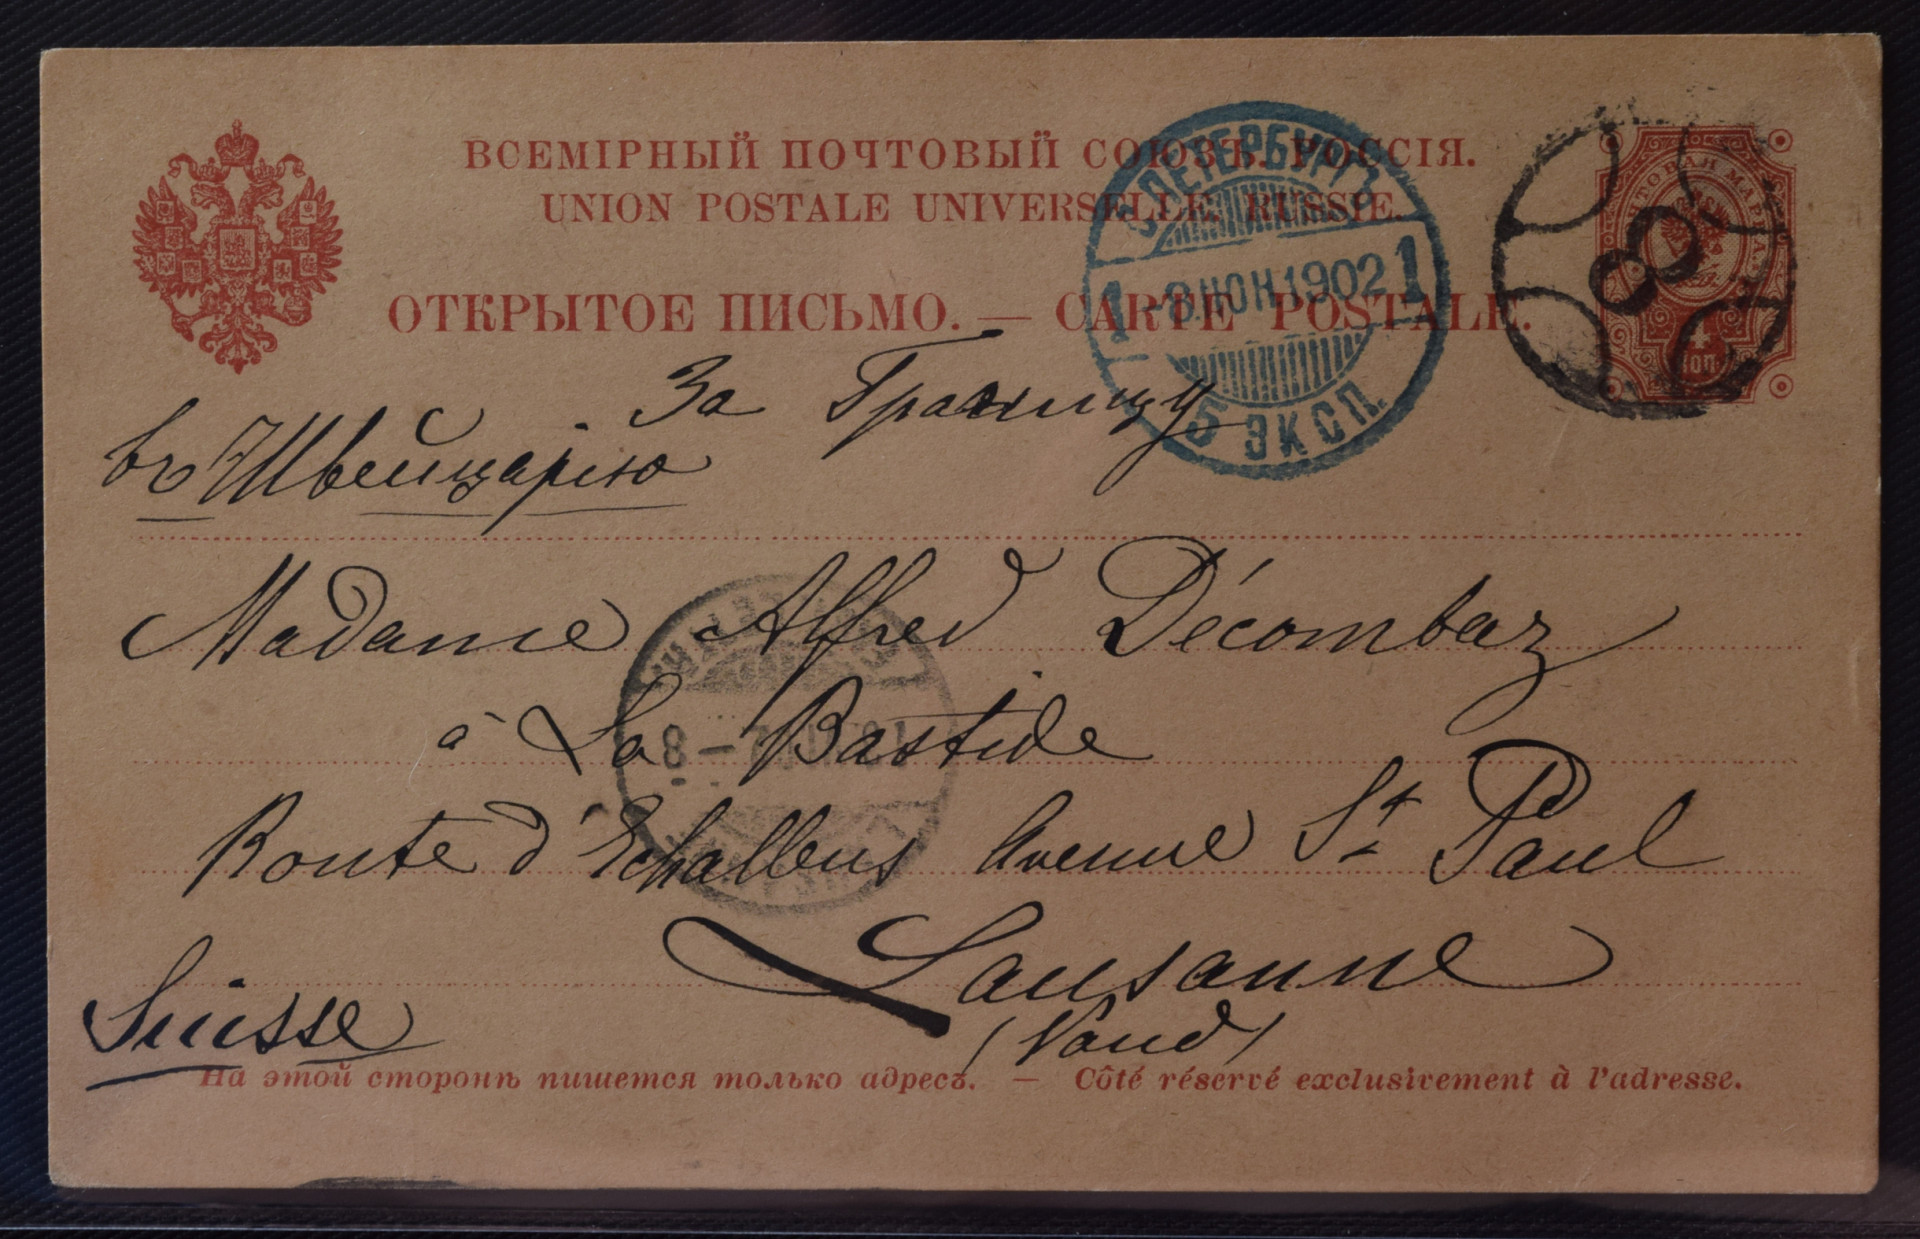 ВСЕМІРНЫЙ ПОЧТОВЫЙ СОЮЗЪ. РОССІЯ.
UNION POSTALE UNIVERSELLE. RUSSIE.
ОТКРЫТОЕ ПИСЬМО. — CARTE POSTALE.
С. ПЕТЕРБУРГЪ
1 -8 ІЮН 1902 1
5 ЭКСП.
ПОЧТОВАЯ МАРКА
8
4
коп.
За Границу
въ Швейцарію
Madame Alfred Décombaz
à La Bastide
Route d'Echallens Avenue St Paul
Lausanne
(Vaud)
Suisse
На этой сторонѣ пишется только адресъ. — Côté réservé exclusivement à l'adresse.